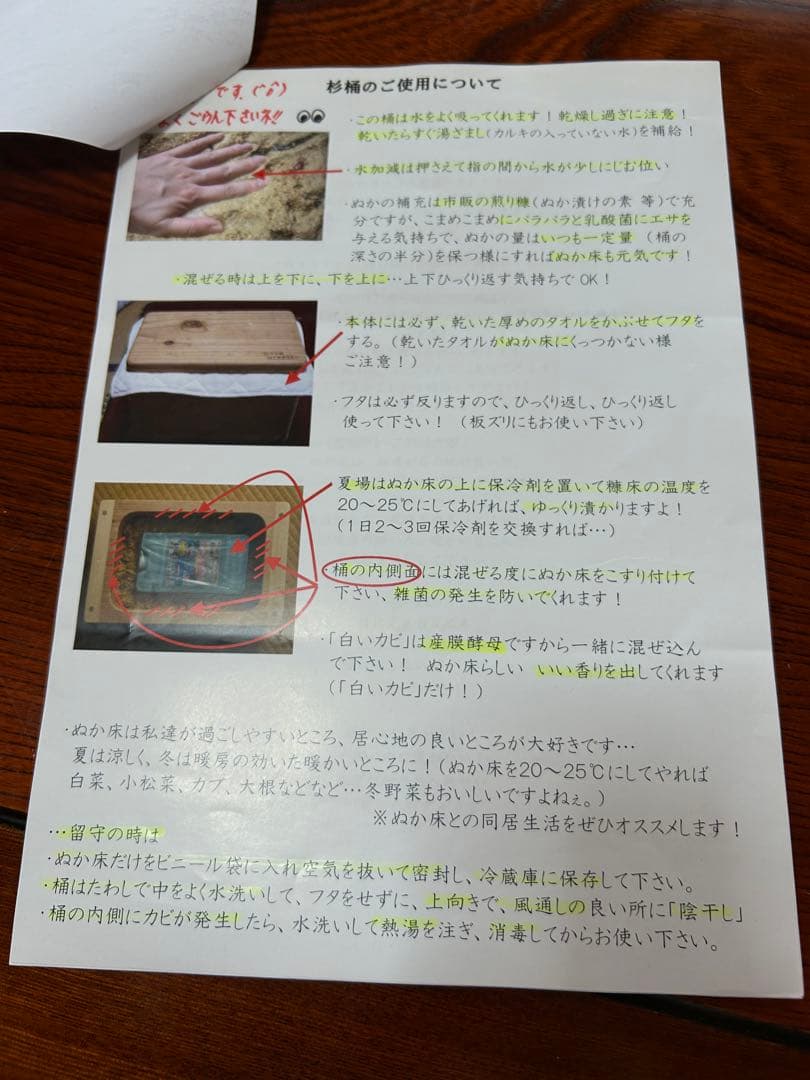 杉桶のご使用について
です。
ごめん下さいネ!!
・この桶は水をよく吸ってくれます！乾燥し過ぎに注意！
乾いたらすぐ湯ざまし(カルキの入っていない水)を補給！
・水加減は押さえて指の間から水が少しにじむ位い
・ぬかの補充は市販の煎り糠(ぬか漬けの素 等)で充
分ですが、こまめこまめにバラバラと乳酸菌にエサを
与える気持ちで、ぬかの量はいつも一定量 (桶の
深さの半分)を保つ様にすればぬか床も元気です！
・混ぜる時は上を下に、下を上に…上下ひっくり返す気持ちでOK！
・本体には必ず、乾いた厚めのタオルをかぶせてフタを
する。(乾いたタオルがぬか床にくっつかない様
ご注意！)
・フタは必ず反りますので、ひっくり返し、ひっくり返し
使って下さい！ (板ズリにもお使い下さい)
夏場はぬか床の上に保冷剤を置いて糠床の温度を
20～25℃にしてあげれば、ゆっくり漬かりますよ！
(1日2～3回保冷剤を交換すれば…)
・桶の内側面には混ぜる度にぬか床をこすり付けて
下さい、雑菌の発生を防いでくれます！
・「白いカビ」は産膜酵母ですから一緒に混ぜ込ん
で下さい！ ぬか床らしい いい香りを出してくれます
(「白いカビ」だけ！)
・ぬか床は私達が過ごしやすいところ、居心地の良いところが大好きです…
夏は涼しく、冬は暖房の効いた暖かいところに！(ぬか床を20～25℃にしてやれば
白菜、小松菜、カブ、大根などなど…冬野菜もおいしいですよねぇ。)
※ぬか床との同居生活をぜひオススメします！
…留守の時は
・ぬか床だけをビニール袋に入れ空気を抜いて密封し、冷蔵庫に保存して下さい。
・桶はたわしで中をよく水洗いして、フタをせずに、上向きで、風通しの良い所に「陰干し」
・桶の内側にカビが発生したら、水洗いして熱湯を注ぎ、消毒してからお使い下さい。